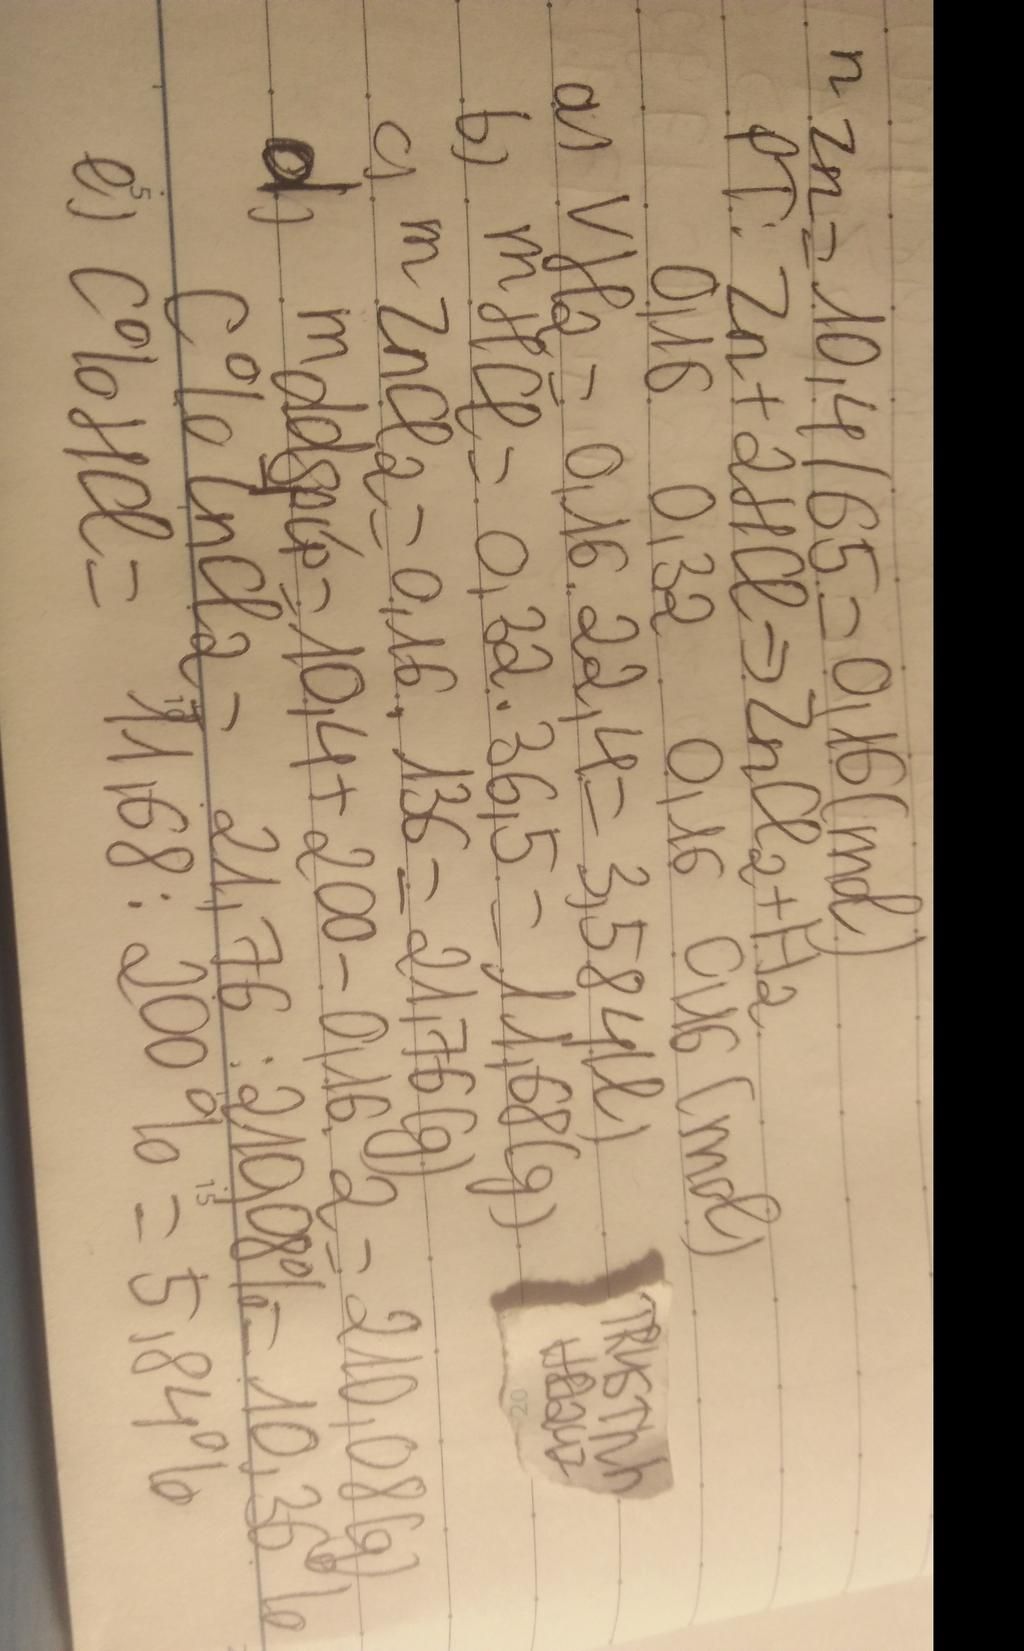 n Zn = 10,4/65 = 0,16 (mol)
PT: Zn + 2HCl => ZnCl2 + H2
0,16 0,32 0,16 0,16 (mol)
a) VH2 = 0,16.22,4 = 3,584(l)
b) mHCl = 0,32.36,5 = 11,68(g)
c) mZnCl2 = 0,16.136 = 21,76(g)
d) mddspứ = 10,4 + 200 - 0,16.2 = 210,08(g)
C% ZnCl2 = 21,76 : 210,08% = 10,36%
e) C% HCl = 11,68 : 200% = 5,84%
5 10 15 20